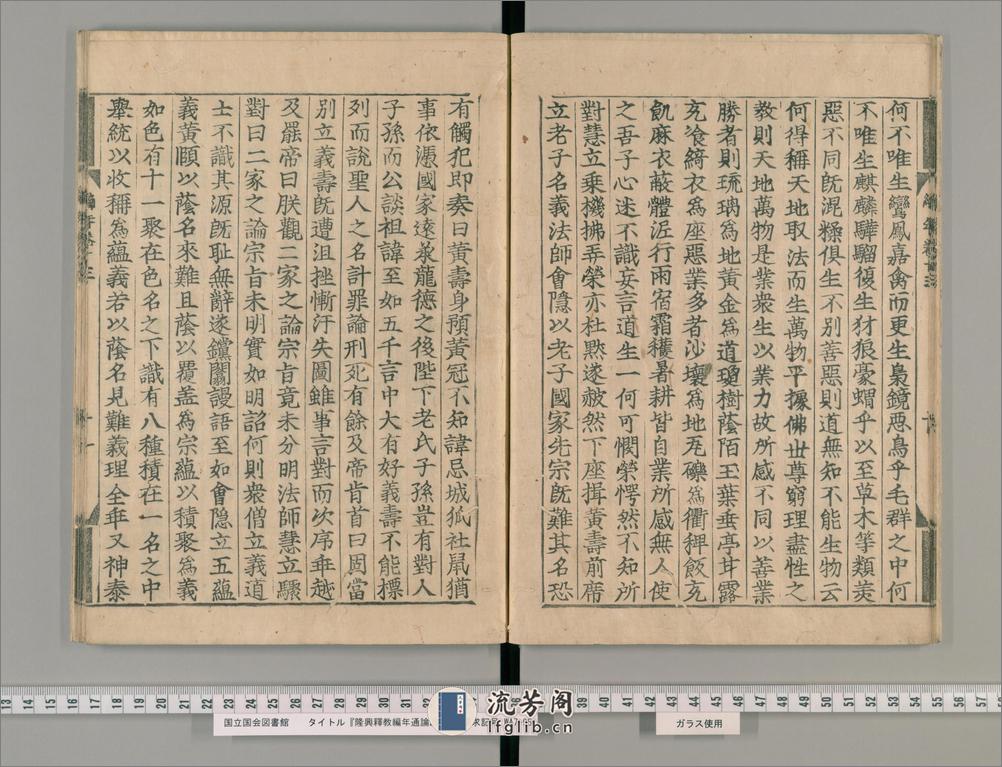 何不唯生鸞鳳嘉禽而更生梟鏡惡鳥乎毛群之中何
不唯生麒麟驊騮復生豺狼豪蝟乎以至草木等類美
惡不同既混糅俱生不別善惡則道無知不能生物云
何得稱天地取法而生萬物平據佛世尊窮理盡性之
教則天地萬物是業衆生以業力故所感不同以善業
勝者則琉璃為地黃金為道瓊樹蔭陌玉葉垂亭甘露
充飡綺衣為座惡業多者沙壤為地瓦礫為衢稗飯充
飢麻衣蔽體泥行雨宿霜穫暑耕皆自業所感無人使
之吾子心迷不識妄言道生一何可憫榮愕然不知所
對慧立乗機拂弄榮亦杜黙遂赧然下座揖黃壽前席
立老子名義法師會隱以老子國家先宗既難其名恐
有觸犯即奏曰黃壽身預黃冠不知諱忌城狐社鼠猶
事依憑國家遠承龍德之後陛下老氏子孫豈有對人
子孫而公談祖諱至如五千言中大有好義壽不能標
列而說聖人之名計罪論刑死有餘及帝肯首曰固當
別立義壽既遭沮挫慚汗失圖雖事言對而次序乖越
及罷帝曰朕觀二家之論宗旨竟未分明法師慧立驟
對曰二家之論宗旨未明實如明詔何則衆僧立義道
士不識其源既恥無辭遂鑽關謾語至如會隱立五蘊
義黃頤以蔭名來難且蔭以覆盖為宗蘊以積聚為義
如色有十一聚在色名之下識有八種積在一名之中
舉統以收稱為蘊義若以蔭名見難義理全乖又神泰
十一
国立国会図書館
タイトル『隆興釋教編年通論
ガラス使用
流芳阁
lfglib.cn